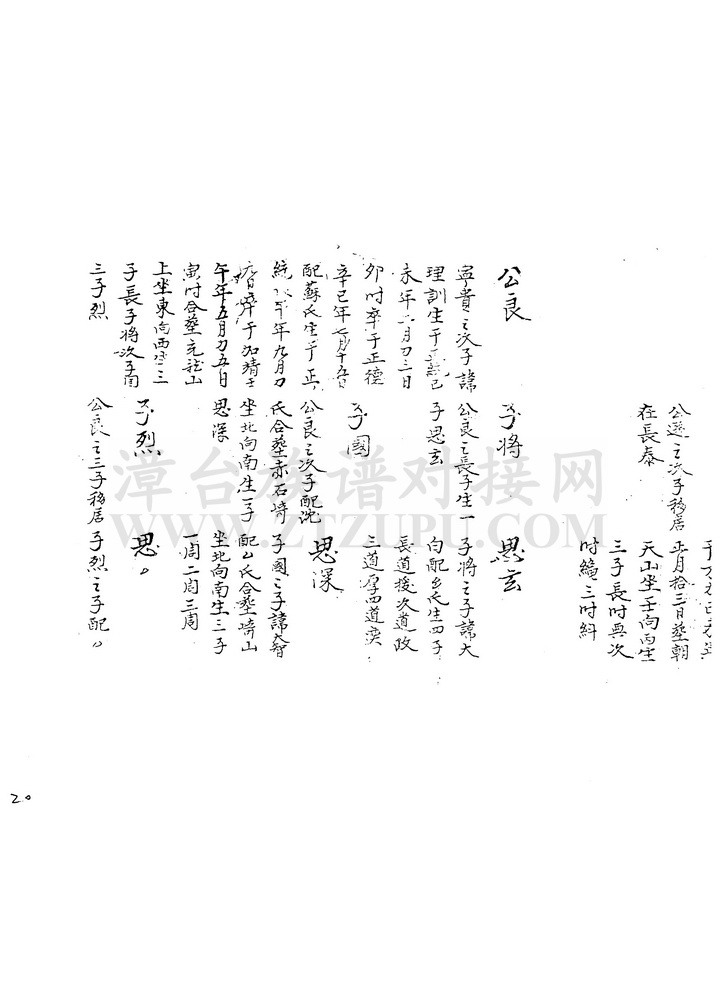 公遜之次子移居
在長泰
正月拾三日塟朝
天山坐壬向丙生
三子長时興次
时纘三时糾
公良
寧貴之次子諱
理訓生于正統己
未年六月刀三日
卯时卒于正德
辛巳年七月十五日
配蘇氏生于正
統 年九月刀
卒于加靖壬
午年五月刀五日
寅时合塟 山
上坐東向西生三
子長子將次子國
三子烈
子將
公良之長子生一
子思玄
子國
公良之次子配沈
氏合塟赤石崎
坐北向南生一子
思深
子烈
公良之三子移居
思玄
子將之子諱大
向配 氏生四子
長道援次道政
三道厚四道奕
思深
子國之子諱大智
配 氏合塟崎山
坐北向南生三子
一周二周三周
思。
子烈之子配。
20
漳台族谱对接网
WWW.ZTZUPU.COM